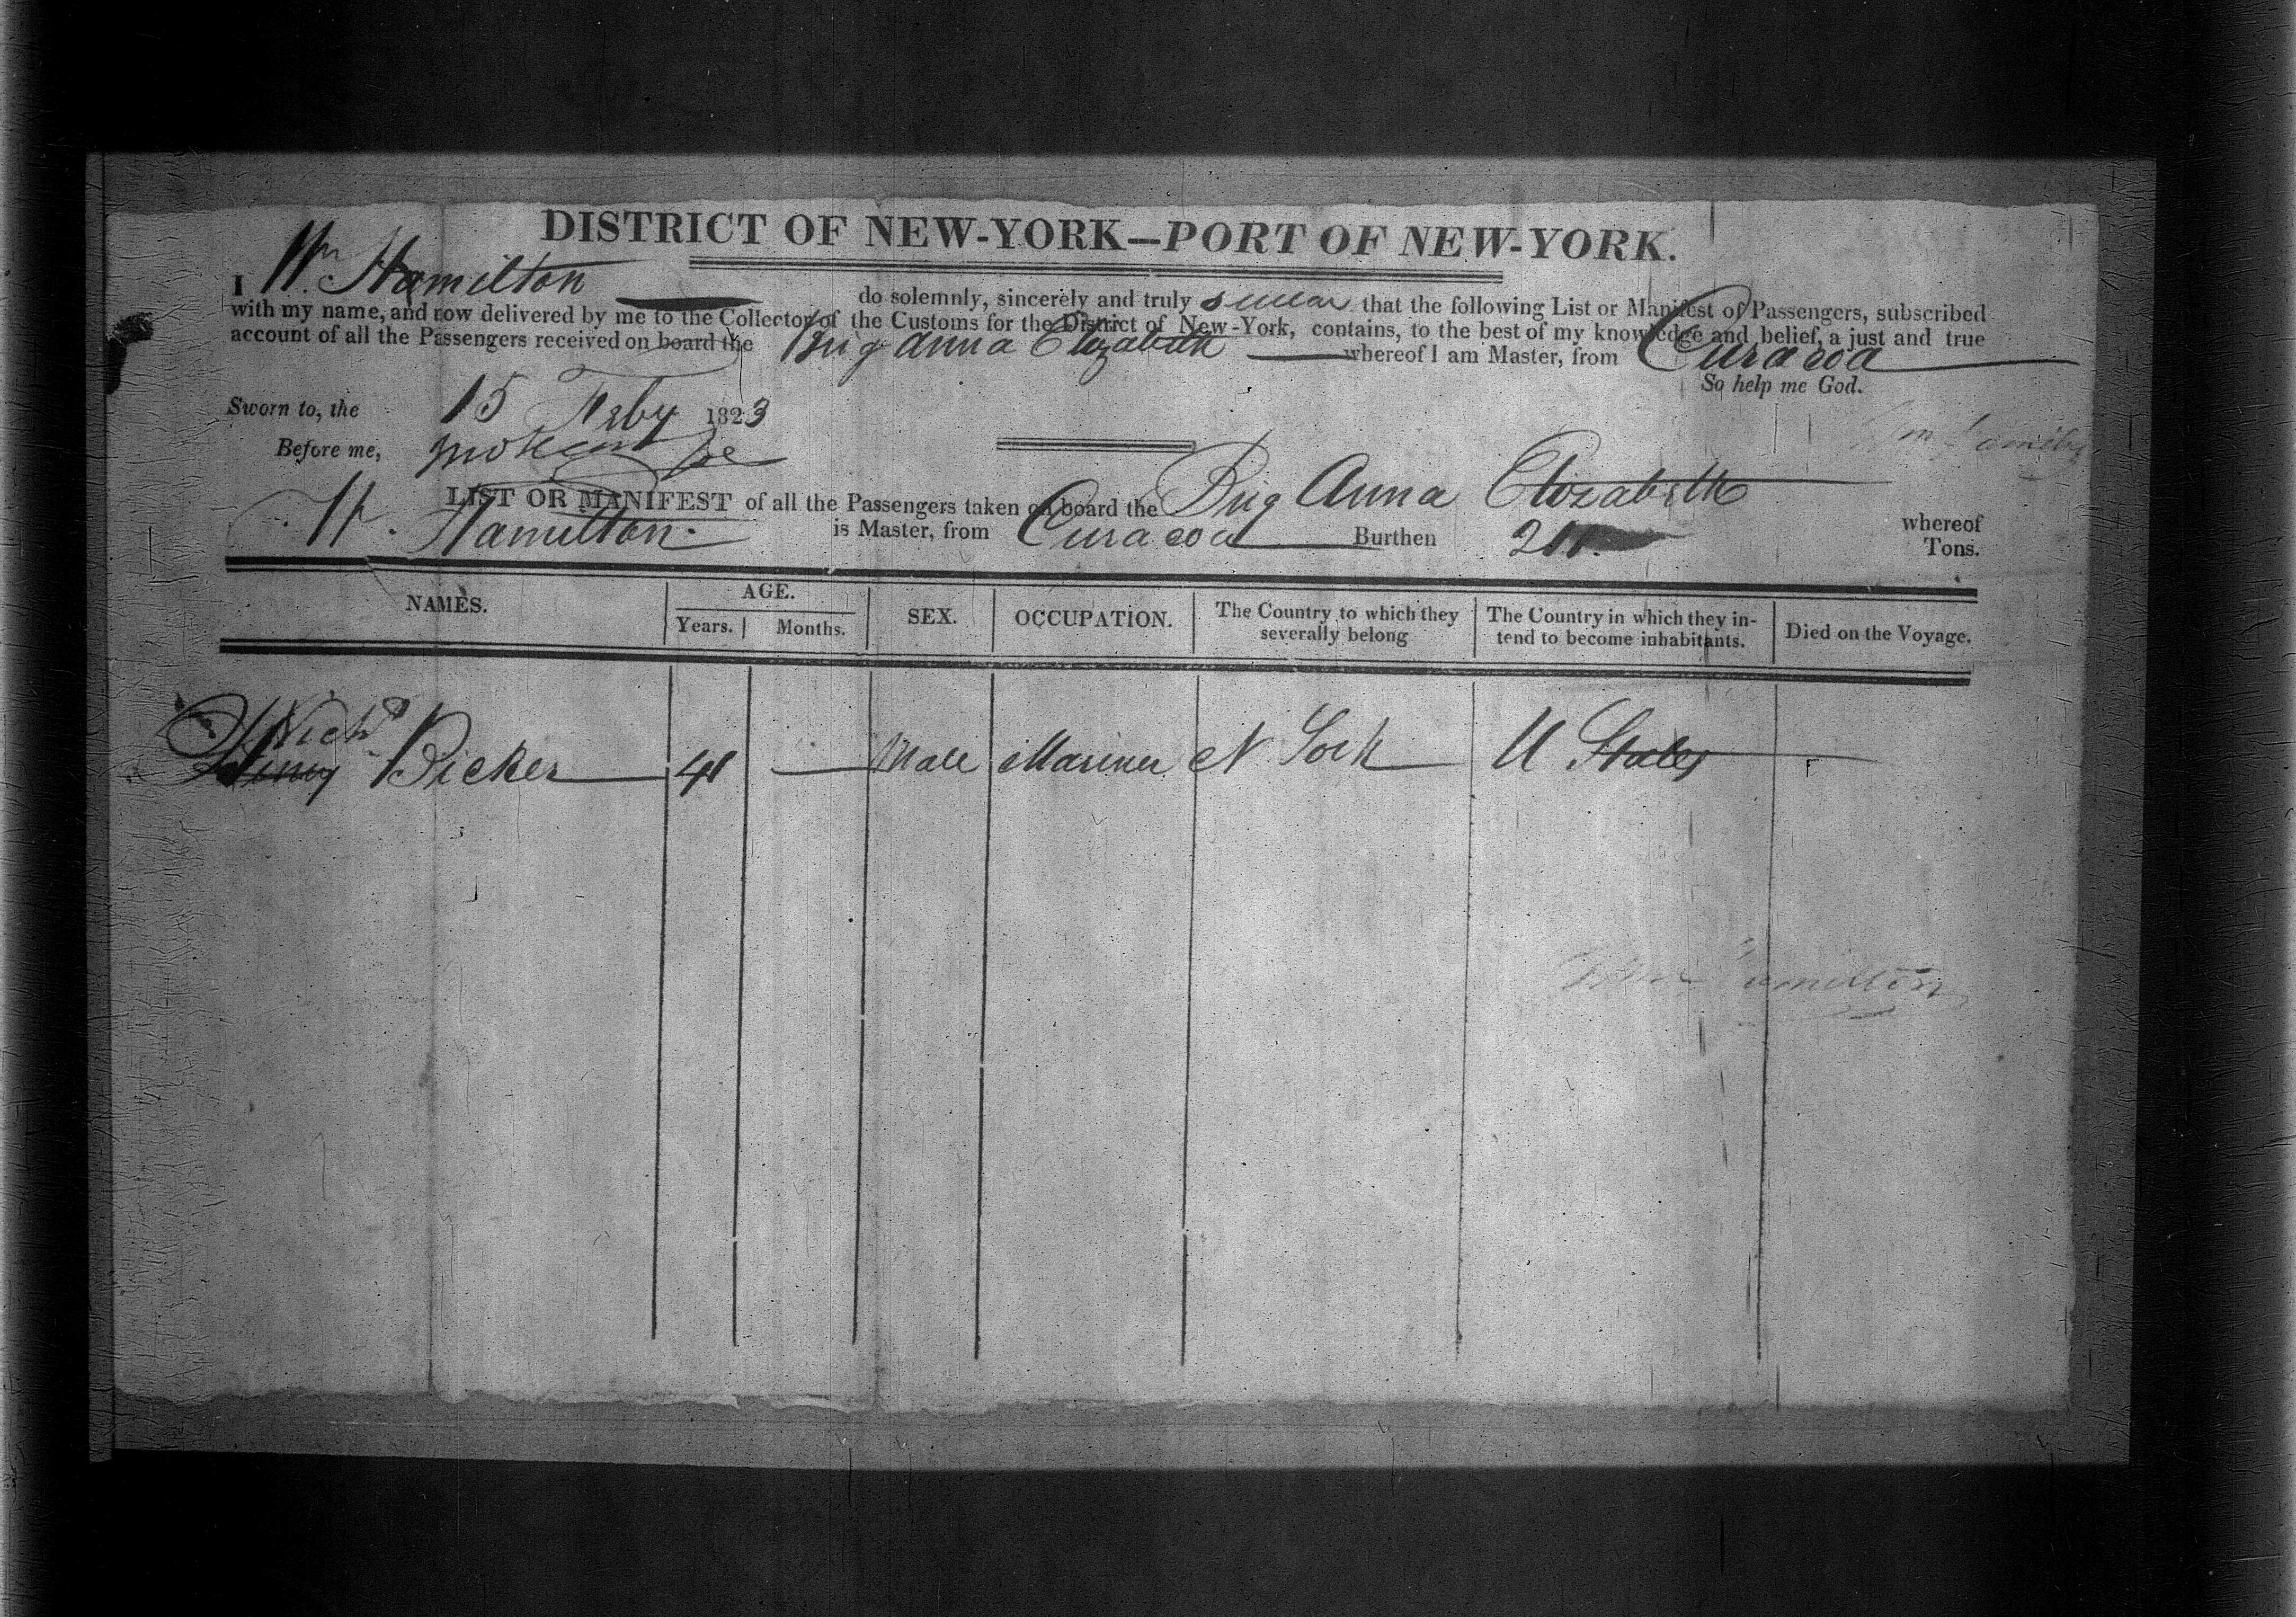 DISTRICT OF NEW-YORK—PORT OF NEW-YORK.
I Wm. Hamilton do solemnly, sincerely and truly swear that the following List or Manifest of Passengers, subscribed
with my name, and now delivered by me to the Collector of the Customs for the District of New-York, contains, to the best of my knowledge and belief, a just and true
account of all the Passengers received on board the Brig Anna Elizabeth whereof I am Master, from Curacoa
So help me God.
Sworn to, the 15 Feby 1823
Before me,
LIST OR MANIFEST of all the Passengers taken on board the Brig Anna Elizabeth whereof
W. Hamilton is Master, from Curacoa Burthen Tons.
NAMES. AGE. SEX. OCCUPATION. The Country to which they severally belong The Country in which they intend to become inhabitants. Died on the Voyage.
Years. Months.
Richd
Henry Bicker 41 — Male Mariner N York U States
Hamilton